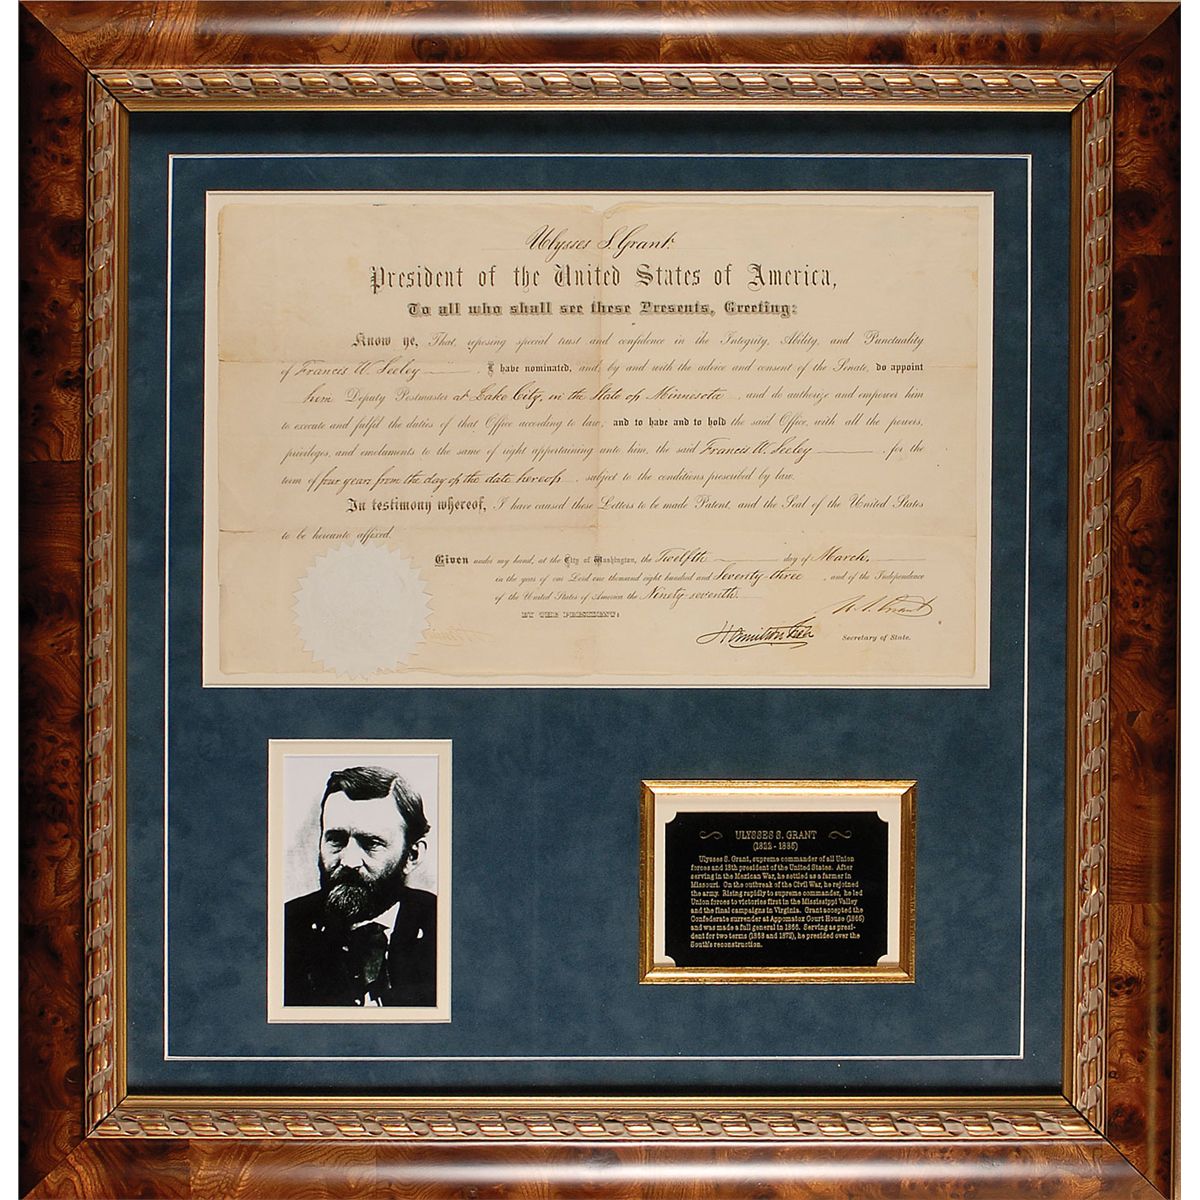 Ulysses S. Grant.
President of the United States of America,
To all who shall see these Presents, Greeting:
Know ye, That, reposing special trust and confidence in the Integrity, Ability, and Punctuality
of Francis W. Seeley , I have nominated, and, by and with the advice and consent of the Senate, do appoint
him Deputy Postmaster at Lake City, in the State of Minnesota , and do authorize and empower him
to execute and fulfil the duties of that Office according to law; and to have and to hold the said Office, with all the powers,
privileges, and emoluments to the same of right appertaining unto him, the said Francis W. Seeley , for the
term of four years from the day of the date hereof , subject to the conditions prescribed by law.
In testimony whereof, I have caused these Letters to be made Patent, and the Seal of the United States
to be hereunto affixed.
Given under my hand, at the City of Washington, the Twelfth day of March,
in the year of our Lord one thousand eight hundred and Seventy-three , and of the Independence
of the United States of America the Ninety-seventh
BY THE PRESIDENT: U. S. Grant
Hamilton Fish Secretary of State.
ULYSSES S. GRANT
(1822 - 1885)
Ulysses S. Grant, supreme commander of all Union
forces and 18th president of the United States. After
serving in the Mexican War, he settled as a farmer in
Missouri. On the outbreak of the Civil War, he rejoined
the army. Rising rapidly to supreme commander, he led
Union forces to victories first in the Mississippi Valley
and the final campaigns in Virginia. Grant accepted the
Confederate surrender at Appomatox Court House (1865)
and was made a full general in 1866. Serving as presi-
dent for two terms (1868 and 1872), he presided over the
South's reconstruction.